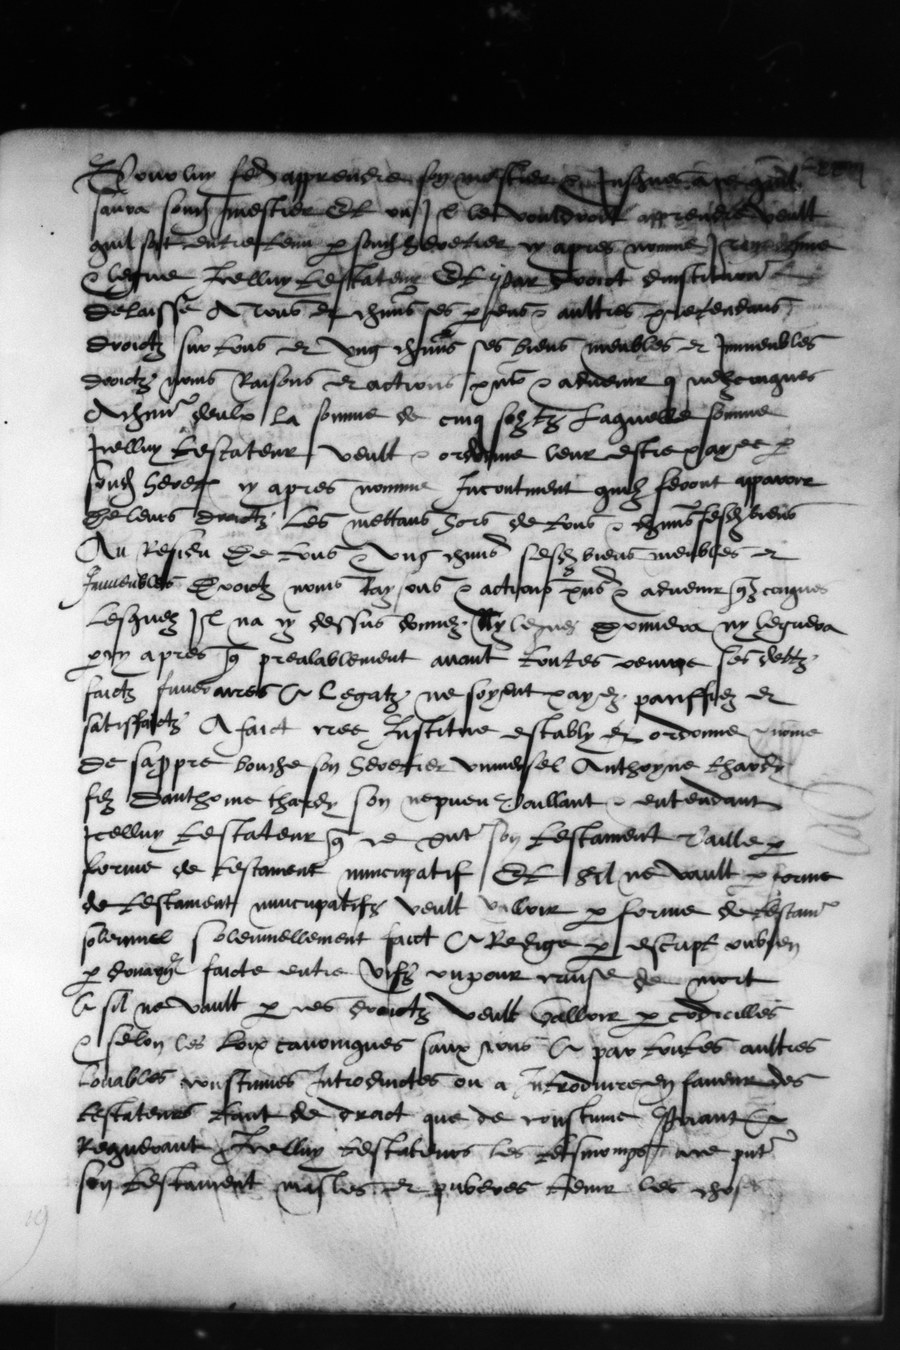 Pour luy fere apprendre son mestier Et jusques a ce quil
saura sond mestier Et ou Il le vouldroit apprendre veult
quil soit entretenu p sond heretier cy apres nomme Item donne
& legue Icelluy testateur Et par droict dinstitution
delaisse A tous et chuns ses parens & aultres pretendans
droictz sur tous et ung chuns ses biens meubles et Immeubles
droictz noms Raisons et actions pns & advenir q uelzcongues
A chun deulx la somme de cinq solz tz Laquelle somme
Icelluy testateur veult & ordonne leur estre payee p
sond heret cy apres nomme Incontinent quilz feront apparoir
de leurs droictz Les mettans hors de tous & chuns sesd biens
Au Residu De tous & ung chuns sesd biens meubles et
Immeubles Droictz noms Raisons & actions pns & advenir qlz congues
Lesquelz Il na cy dessus donnez Ny leguez donnera ny leguera
p cy apres q prealablement avant toutes ses debtz
faictz funeraires & Legatz ne soyent payez paciffiez et
satisfaictz A faict cree Institue estably et ordonne & nome
de sa ppre bouche son heretier universel Anthoyne thardy
filz Danthoine thardy son nepveu Vaillant & entendant
Icelluy testateur q ce pnt son testament Vaille p
forme de testament nuncupatif Et sil ne vault p forme
de testament nuncupatifz veult valloir p forme de testamt
solennel solennellement faict & Redige p escript ou bien
p donation faicte entre vifz ou pour cause de mort
& sil ne vault p ces droictz veult valloir p codicilles
& selon les loix canoniques sanxions & par toutes aultres
Louables coustumes Introductes ou a Introduire en faveur des
testateurs tant de droict que de coustume Priant &
Requerant Icelluy testateurs les tesmoings a ce pnt
son testament masles et puberes tenir les chos